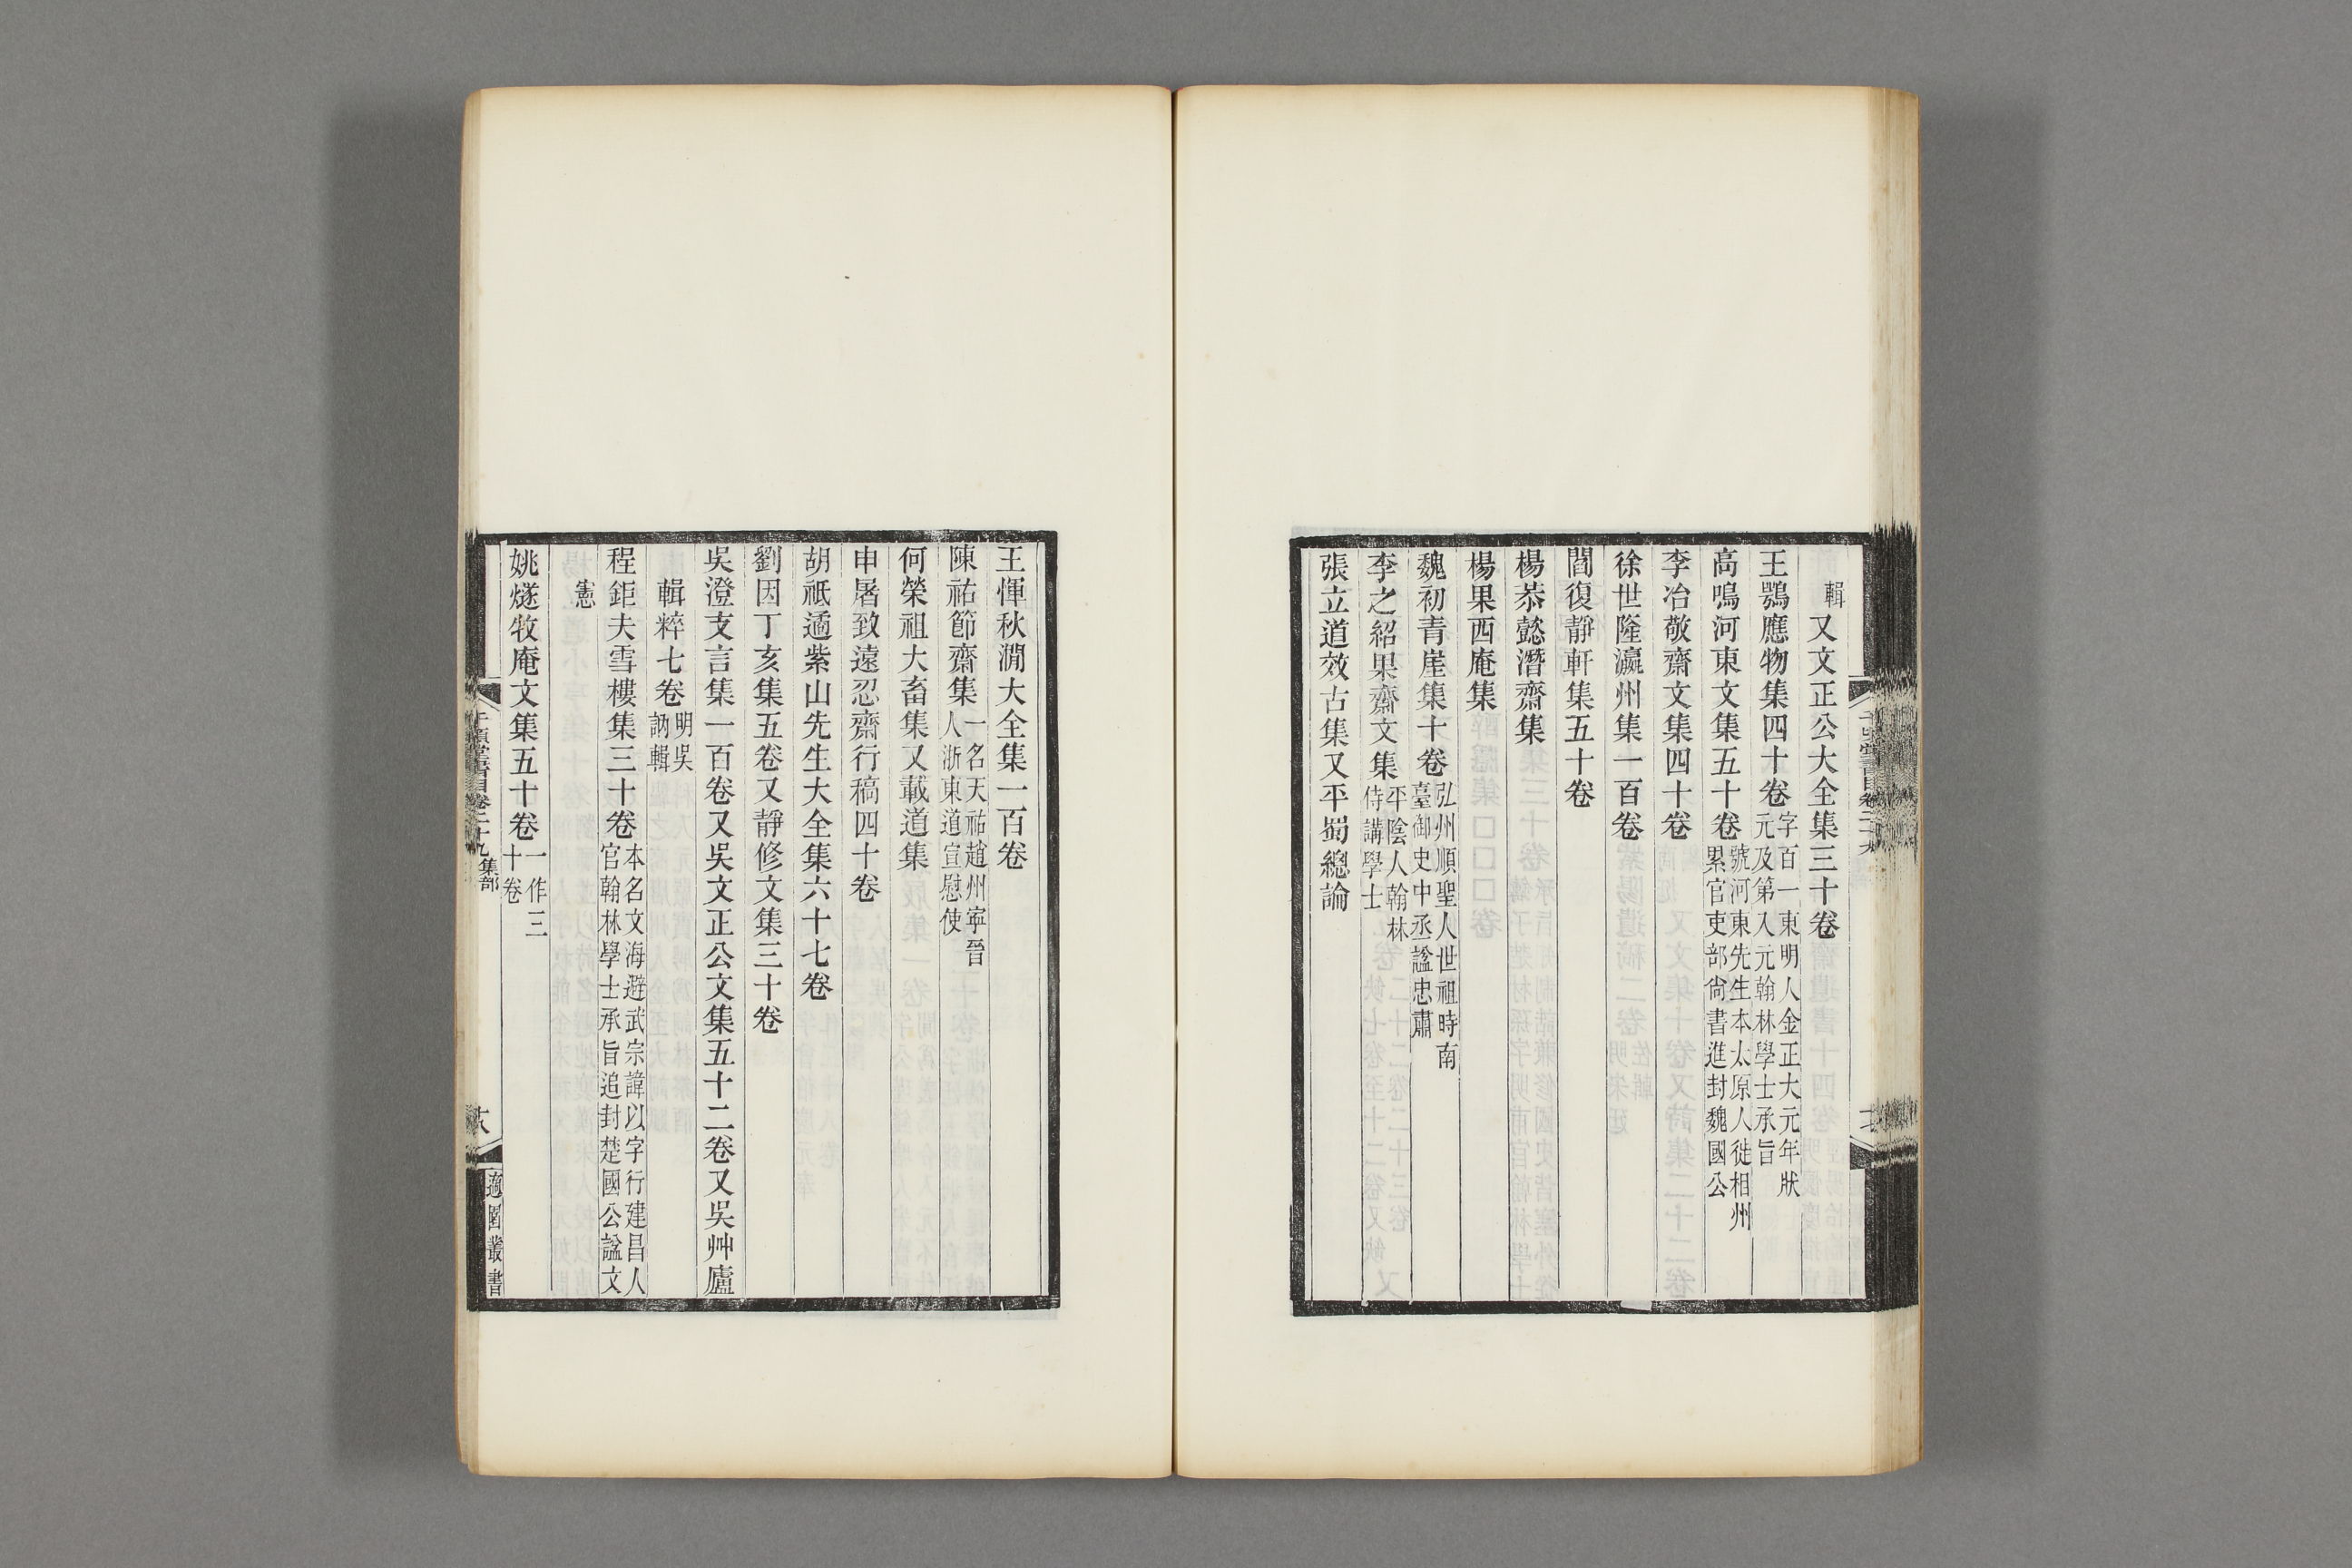 輯又文正公大全集三十卷
王鶚應物集四十卷字百一東明人金正大元年狀元及第入元翰林學士承旨
高鳴河東文集五十卷號河東先生本太原人徙相州累官吏部尙書進封魏國公
李冶敬齋文集四十卷
徐世隆瀛州集一百卷
閻復靜軒集五十卷
楊恭懿潛齋集
楊果西庵集
魏初青崖集十卷弘州順聖人世祖時南臺御史中丞諡忠肅
李之紹果齋文集平陰人翰林侍講學士
張立道效古集又平蜀總論
王惲秋澗大全集一百卷
陳祐節齋集一名天祐趙州寧晉人浙東道宣慰使
何榮祖大畜集又載道集
申屠致遠忍齋行稿四十卷
胡祗遹紫山先生大全集六十七卷
劉因丁亥集五卷又靜修文集三十卷
吳澄支言集一百卷又吳文正公文集五十二卷又吳艸廬
輯粹七卷明吳訥輯
程鉅夫雪樓集三十卷本名文海避武宗諱以字行建昌人官翰林學士承旨追封楚國公諡文
憲
姚燧牧庵文集五十卷一作三十卷
千頃堂書目卷二十九集部
十八
適園叢書